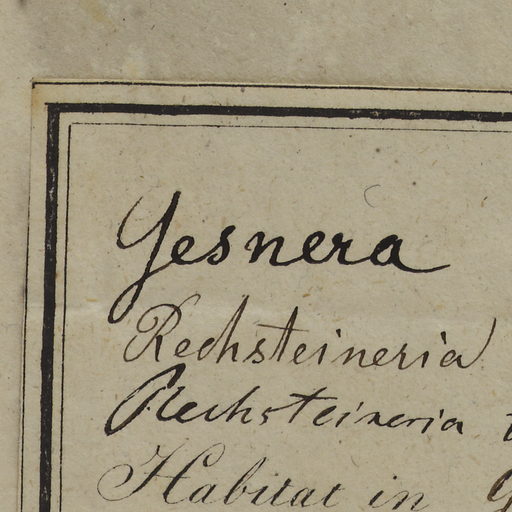 Gesnera
Rechsteineria
Rechsteineria
Habitat in